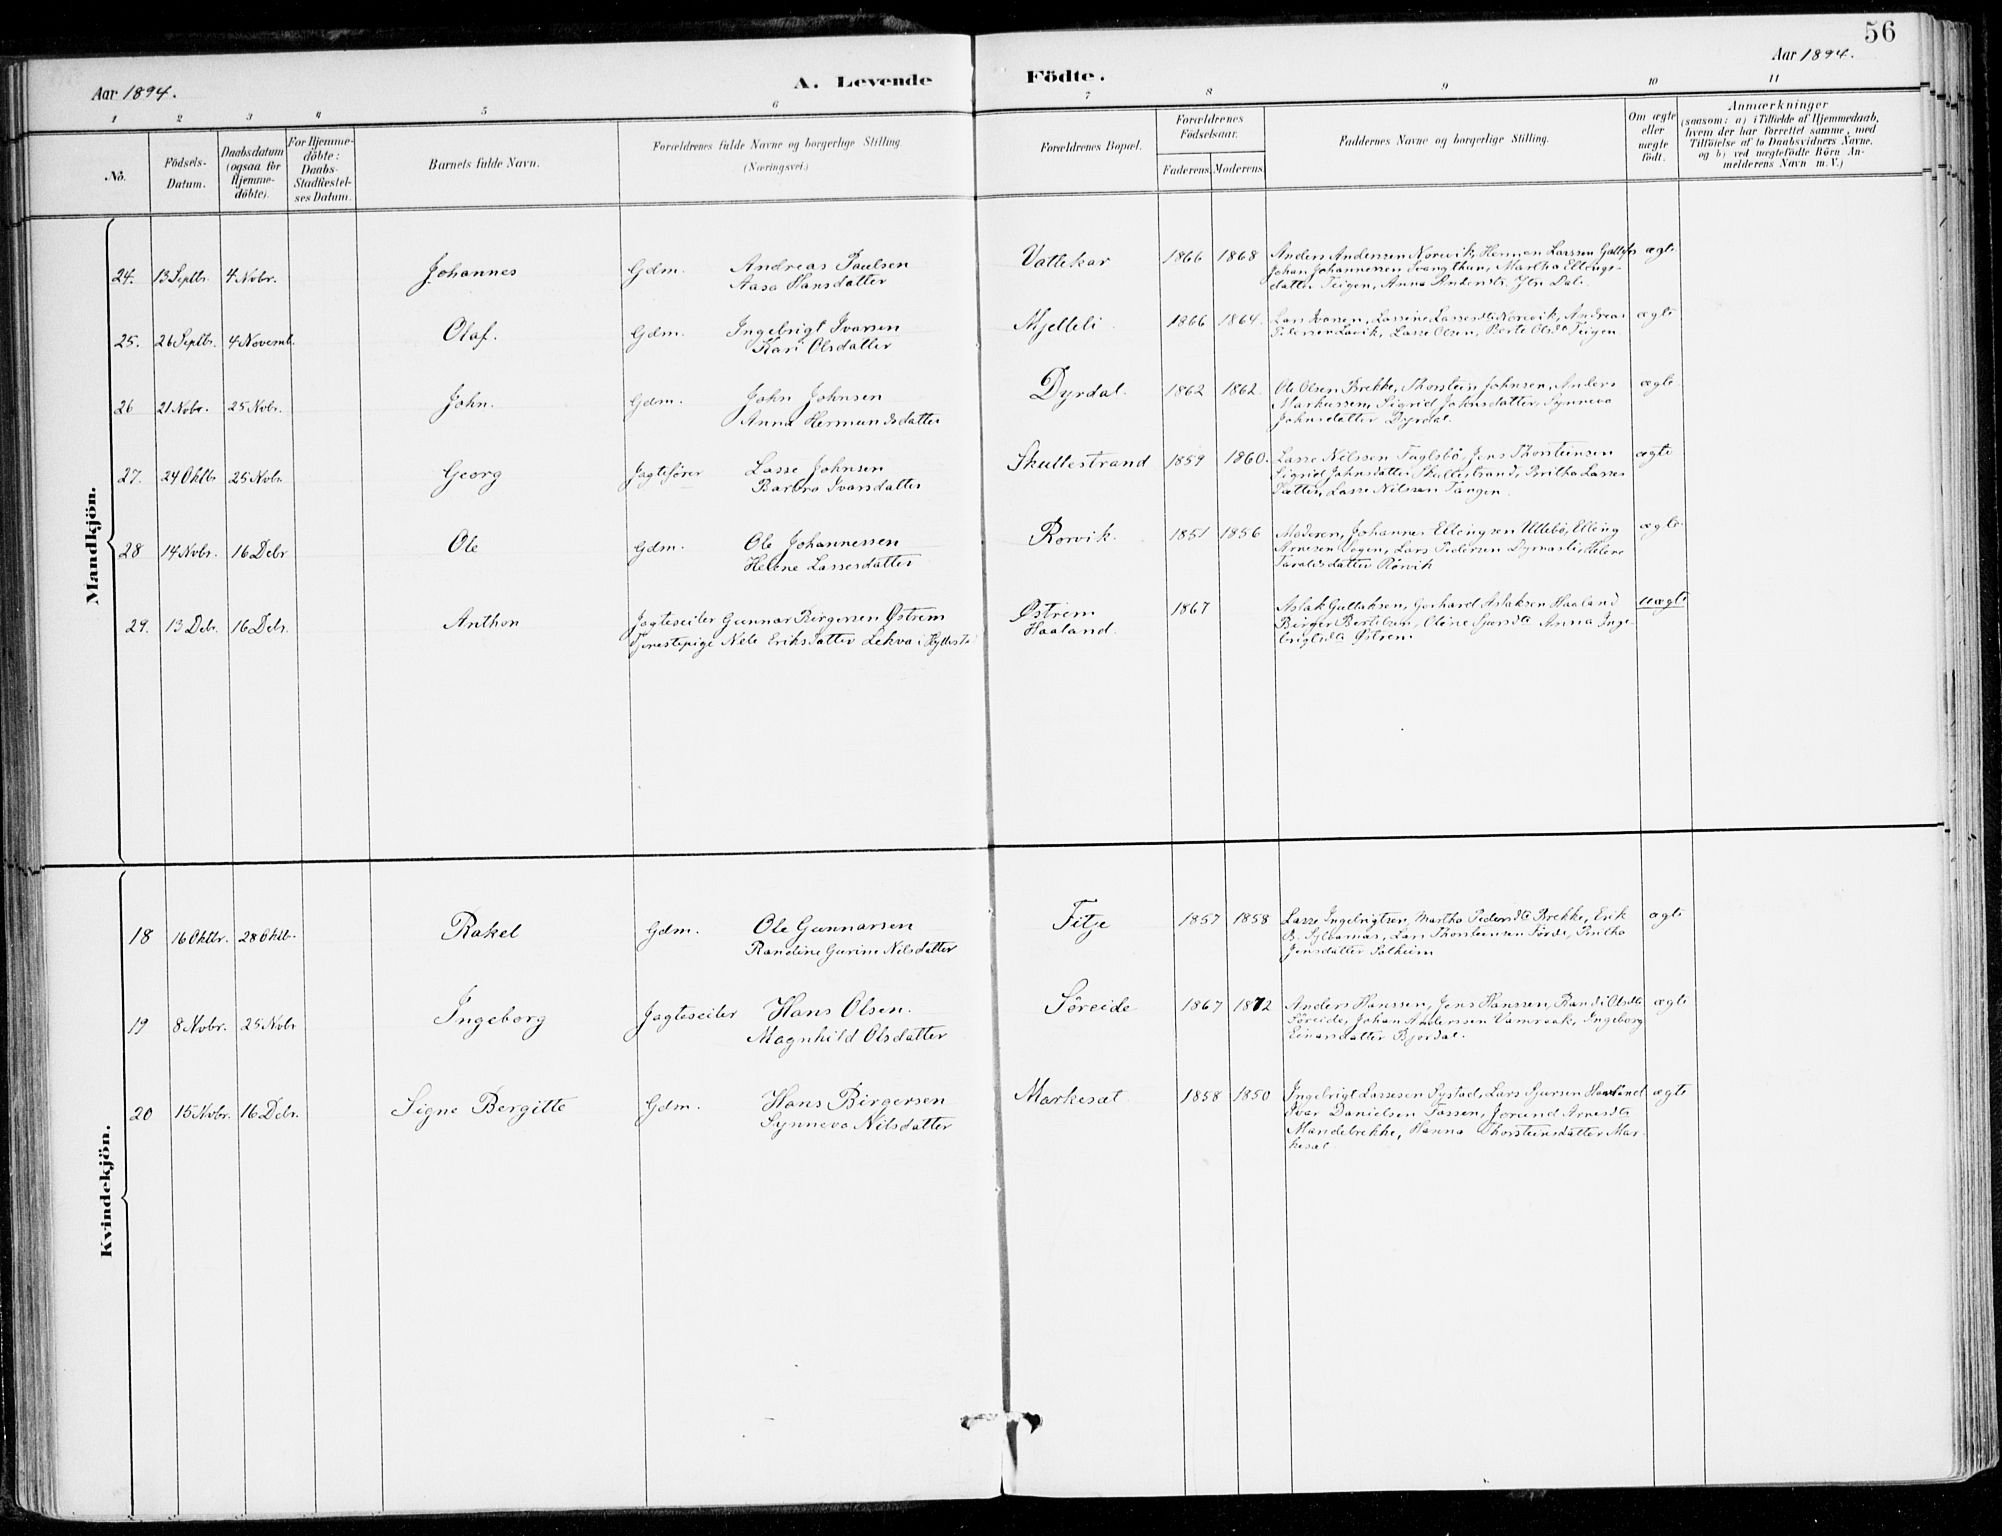 56
Aar 1894.
A. Levende Födte.
Aar 1894.
1 2 3 4 5 6 7 8 9 10 11
No.
Födsels-Datum.
Daabsdatum (ogsaa for Hjemme-döbte).
For Hjemme-döbte: Daabs-Stadfæstel-ses Datum.
Barnets fulde Navn.
Forældrenes fulde Navne og borgerlige Stilling.
(Næringsvei.)
Forældrenes Bopæl.
Forældrenes Födselsaar.
Faderens. Moderens.
Faddernes Navne og borgerlige Stilling.
Om ægte eller uægte födt.
Anmærkninger
(saasom: a) i Tilfælde af Hjemmedaab,
hvem der har forrettet samme, med
Tilföielse af to Daabsvidners Navne,
og b) ved uægtefödte Börn An-
melderens Navn m. V.)
Mandkjön.
24. 13 Septbr. 4 Nobr. Johannes Gdm. Andreas Paulsen Vattekar 1866 1868 Anders Andersen Norevik, Herman Larssen ægte
Aasa Hansdatter Johan Johannessen Martha Ellings-
datter Teigen, Anna Ytre Dale
25. 26 Septbr. 4 Novemb. Olaf. Gdm. Ingebrigt Ivarsen Mjelleli 1866 1864. Lars Ivarsen, Lassine Lassesdtr Norevik, Andreas ægte
Kari Olsdatter Pedersen Lavik, Lasse Olsen, Berte Olsdtr Teigen
26 21 Nobr. 25 Nobr. John. Gdm. John Johnsen Dyrdal. 1862 1862. Ole Olsen Brekke, Thorstein Johnsen, Anders ægte
Anna Hermundsdatter Markussen, Sigrid Johnsdatter, Synneva
Johnsdatter Dyrdal.
27. 24 Oktbr 25 Nobr. Georg Jagtefører Lasse Johnsen Skullestrand 1859 1860. Lasse Nilssen Taglsbö, Jens Thorsteinsen ægte
Barbro Ivarsdatter Sigrid Johnsdatter Skullestrand, Britha Lasses
datter, Lasse Nilssen Tangen
28 14 Nobr. 16 Debr Ole Gdm. Ole Johannessen Rorvik. 1851 1856 Moderen, Johannes Ellingsen Ullebö, Elling ægte
Helene Lassesdatter Arnesen Lars Pedersen Helene
datter Rörvik
29. 13 Debr. 16 Debr. Anthon Jagteseiler Gunnar Birgersen Østrem Østrem 1867 Aslak Guttaksen, Gerhard Aslaksen Haaland uægte
Tjenestepige Nele Eriksdatter Lekva i Hyllestad Haaland. Birger Bertelsen, Oline Sjursdtr Anna Inge-
brigtsdtr
Kvindekjön.
18 16 Oktbr. 28 Oktb. Rakel Gdm. Ole Gunnarsen Fitje 1857 1858 Lasse Ingebrigtsen, Martha Pedersdtr Brekke, Erik ægte
Randine Gurine Nilsdatter Lars Thorsteinsen Sörde, Britha
Jensdatter Solheim
19 8 Nobr. 25 Nobr Ingeborg Jagteseiler Hans Olsen. Söreide 1867 1872 Anders Hanssen, Jens Hanssen, Randi Olsdtr ægte
Magnhild Olsdatter Söreide, Johan Anderssen Vamraak, Ingeborg
Einarsdatter Bjordal.
20 15 Nobr. 16 Debr. Signe Bergitte Gdm. Hans Birgersen Markesæt 1858 1850 Ingebrigt Lassesen Systad, Lars Sjursen Haaland ægte
Synneva Nilsdatter Ivar Danielsen Tassen, Jorund Arnesdtr
Mandebrekke, Hanna Thorsteinsdatter Mar-
kesæt